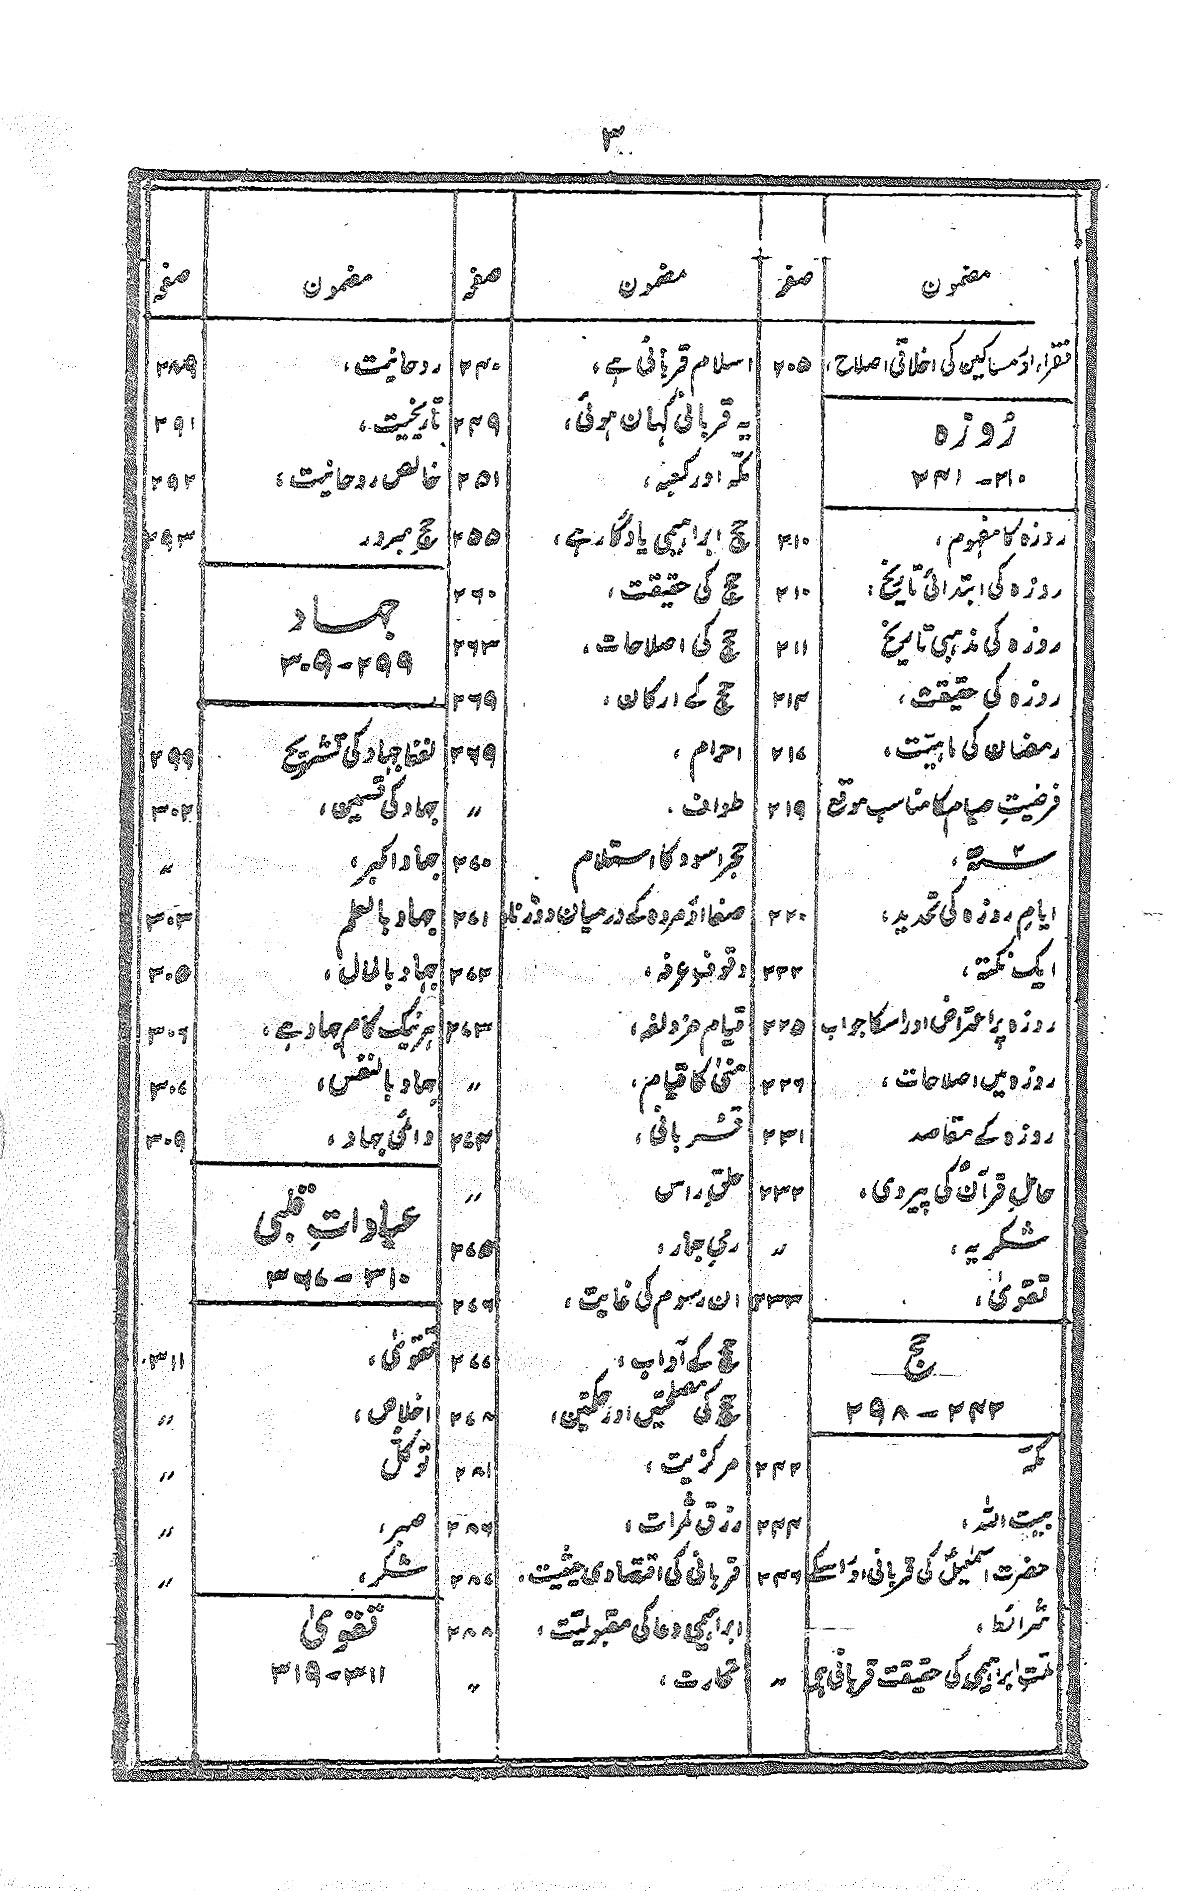 ۳
مضمون صفحہ
فقراء اور مساکین کی اخلاقی اصلاح، ۲۰۵
روزہ
۲۱۰-۲۴۱
روزہ کا مفہوم، ۲۱۰
روزہ کی ابتدائی تاریخ، ۲۱۰
روزہ کی مذہبی تاریخ ۲۱۱
روزہ کی حقیقت، ۲۱۴
رمضان کی ماہیت، ۲۱۷
فرضیتِ صیام کا مناسب موقع ۲۱۹
۲ سنہ،
ایامِ روزہ کی تحدید، ۲۲۰
ایک نکتہ، ۲۲۲
روزہ پر اعتراض اور اسکا جواب ۲۲۵
روزہ میں اصلاحات، ۲۲۶
روزہ کے مقاصد ۲۳۱
حاملِ قرآن کی پیروی، ۲۳۲
شکریہ، ״
تقویٰ، ۲۳۳
حج
۲۴۲-۲۹۸
مکہ ۲۴۲
بیت اللہ، ۲۴۴
حضرت اسمٰعیلؑ کی قربانی اور اسکے ۲۴۶
شرائط،
ملتِ ابراہیمی کی حقیقت قربانی ہی ״
مضمون صفحہ
اسلام قربانی ہے، ۲۴۰
یہ قربانی کہاں ہوئی، ۲۴۹
مکہ اور کعبہ، ۲۵۱
حج ابراہیمی یادگار ہے، ۲۵۵
حج کی حقیقت، ۲۶۰
حج کی اصلاحات، ۲۶۳
حج کے ارکان، ۲۶۹
احرام، ۲۶۹
طواف. ״
حجر اسود کا استلام ۲۷۰
صفا اور مروہ کے درمیان دوڑنا، ۲۷۱
وقوفِ عرفہ، ۲۷۲
قیام مزدلفہ، ۲۷۳
منیٰ کا قیام، ״
قربانی، ۲۷۴
حلق راس ״
رمی جمار، ۲۷۵
ان رسوم کی غایت، ۲۷۶
حج کے آداب، ۲۷۷
حج کی مصلحتیں اور حکمتیں، ۲۷۸
مرکزیت، ۲۸۱
رزق ثمرات، ۲۸۶
قربانی کی اقتصادی حیثیت، ۲۸۷
ابراہیمی دعا کی مقبولیت، ۲۸۸
تجارت، ״
مضمون صفحہ
روحانیت، ۲۸۹
تاریخیت، ۲۹۱
خالص روحانیت، ۲۹۲
حج مبرور ۲۹۳
جہاد
۲۹۹-۳۰۹
لفظ جہاد کی تشریح ۲۹۹
جہاد کی قسمیں، ۳۰۲
جہاد اکبر، ״
جہاد بالعلم ۳۰۳
جہاد بالمال، ۳۰۵
ہر نیک کام جہاد ہے، ۳۰۶
جہاد بالنفس، ۳۰۷
دائمی جہاد، ۳۰۹
عباداتِ قلبی
۳۱۰-۳۶۷
تقویٰ، ۳۱۱
اخلاص، ״
توکل ״
صبر، ״
شکر، ״
تقویٰ
۳۱۱-۳۱۹